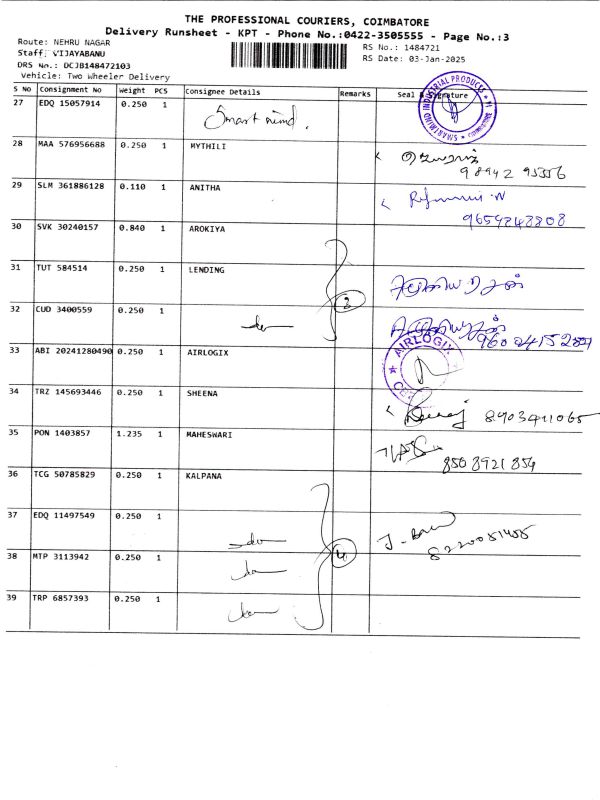 THE PROFESSIONAL COURIERS, COIMBATORE
Delivery Runsheet - KPT - Phone No.:0422-3505555 - Page No.:3
Route: NEHRU NAGAR
RS No.: 1484721
Staff: VIJAYABANU
RS Date: 03-Jan-2025
DRS No.: DCJB148472103
Vehicle: Two Wheeler Delivery
S No Consignment No Weight PCS Consignee Details Remarks Seal & Signature
SMARTMIND INDUSTRIAL PRODUCTS
27 EDQ 15057914 0.250 1 Smart mind.
28 MAA 576956688 0.250 1 MYTHILI
98942 95556
29 SLM 361886128 0.110 1 ANITHA
9659248808
30 SVK 30240157 0.840 1 AROKIYA
31 TUT 584514 0.250 1 LENDING
32 CUD 3400559 0.250 1
33 ABI 20241280490 0.250 1 AIRLOGIX AIRLOGIX
34 TRZ 145693446 0.250 1 SHEENA
35 PON 1403857 1.235 1 MAHESWARI
8508921854
36 TCG 50785829 0.250 1 KALPANA
37 EDQ 11497549 0.250 1
38 MTP 3113942 0.250 1 4
39 TRP 6857393 0.250 1